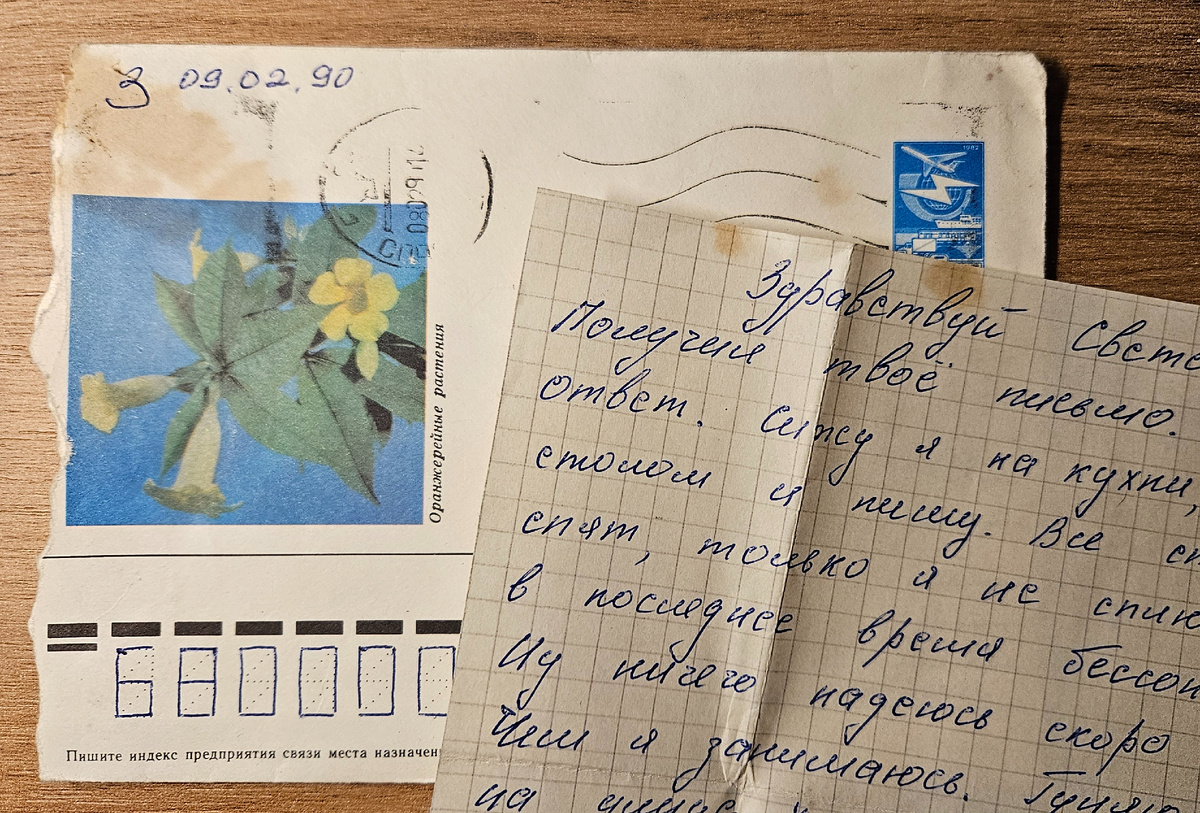 3 09.02.90
1982
Оранжерейные растения
Пишите индекс предприятия связи места
Здравствуй
Получил твоё письмо.
ответ. Сижу я на кухни,
столом и пишу. Все
спят, только я не сплю
в последнее время
Ну ничего надеюсь скоро
Чем я занимаюсь.
на